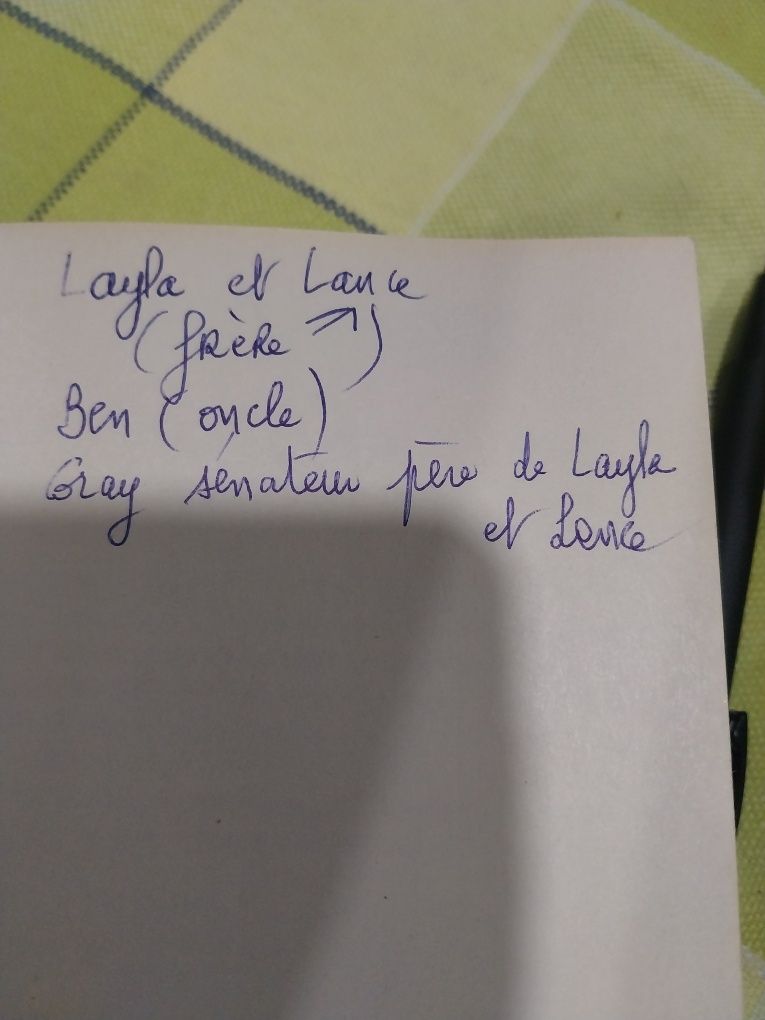 Layla et Lance
(frère ↗)
Ben (oncle)
Gray sénateur père de Layla
et Lance